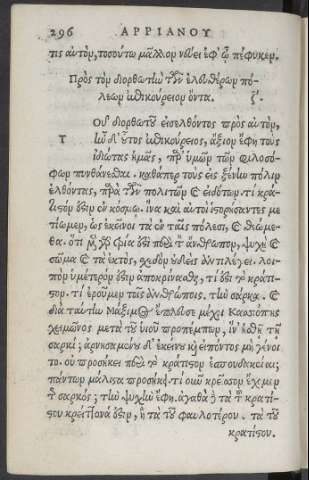 296 ΑΡΡΙΑΝΟΥ
τις αὐτὸν, τοσούτῳ μᾶλλον νεύει ἐφ' ᾧ πέφυκεν.
Πρὸς τὸν διορθωτὴν τῶν ἐλευθέρων πό-
λεων ἐπικούρειον ὄντα. ζ'.
Τοῦ διορθωτοῦ εἰσελθόντος πρὸς αὐτὸν,
ἦν δ' οὗτος ἐπικούρειος, ἄξιον ἔφη τοὺς
ἰδιώτας ἡμᾶς, παρ' ὑμῶν τῶν φιλοσό-
φων πυνθάνεσθαι. καθάπερ τοὺς εἰς ξένην πόλιν
ἐλθόντας, παρὰ τῶν πολιτῶν καὶ εἰδότων. τί κρά-
τιστόν ἐστιν ἐν κόσμῳ. ἵνα καὶ αὐτοὶ ἱστορήσαντες με
τίωμεν, ὡς ἐκεῖνοι τὰ ἐν ταῖς πόλεσι, καὶ θεώμε-
θα. ὅτι μὲν γὰρ τρία ἐστὶ περὶ τὸν ἄνθρωπον, ψυχὴ καὶ
σῶμα καὶ τὰ ἐκτὸς, σχεδὸν οὐδεὶς ἀντιλέγει. λοι-
πὸν ὑμέτερόν ἐστιν ἀποκρίνασθαι, τί ἐστι τὸ κράτι-
στον. τί ἐροῦμεν τοῖς ἀνθρώποις. τὴν σάρκα. καὶ
διὰ ταύτην Μάξιμος ἔπλευσε μέχρι Κασσιόπης
χειμῶνος μετὰ τοῦ υἱοῦ προπέμπων, ἵν' ἡσθῇ τῇ
σαρκί; ἀρνησαμένου δ' ἐκείνου καὶ εἰπόντος μὴ γένοι
το. οὐ προσήκει περὶ τὸ κράτιστον ἐσπουδακέναι;
πάντων μάλιστα προσήκει. τί οὖν κρεῖσσον ἔχομεν
τῆς σαρκός; τὴν ψυχὴν ἔφη. ἀγαθὰ δὲ τὰ τοῦ κρατί-
στου κρείττονά ἐστιν, ἢ τὰ τοῦ φαυλοτέρου. τὰ τοῦ
κρατίστου.